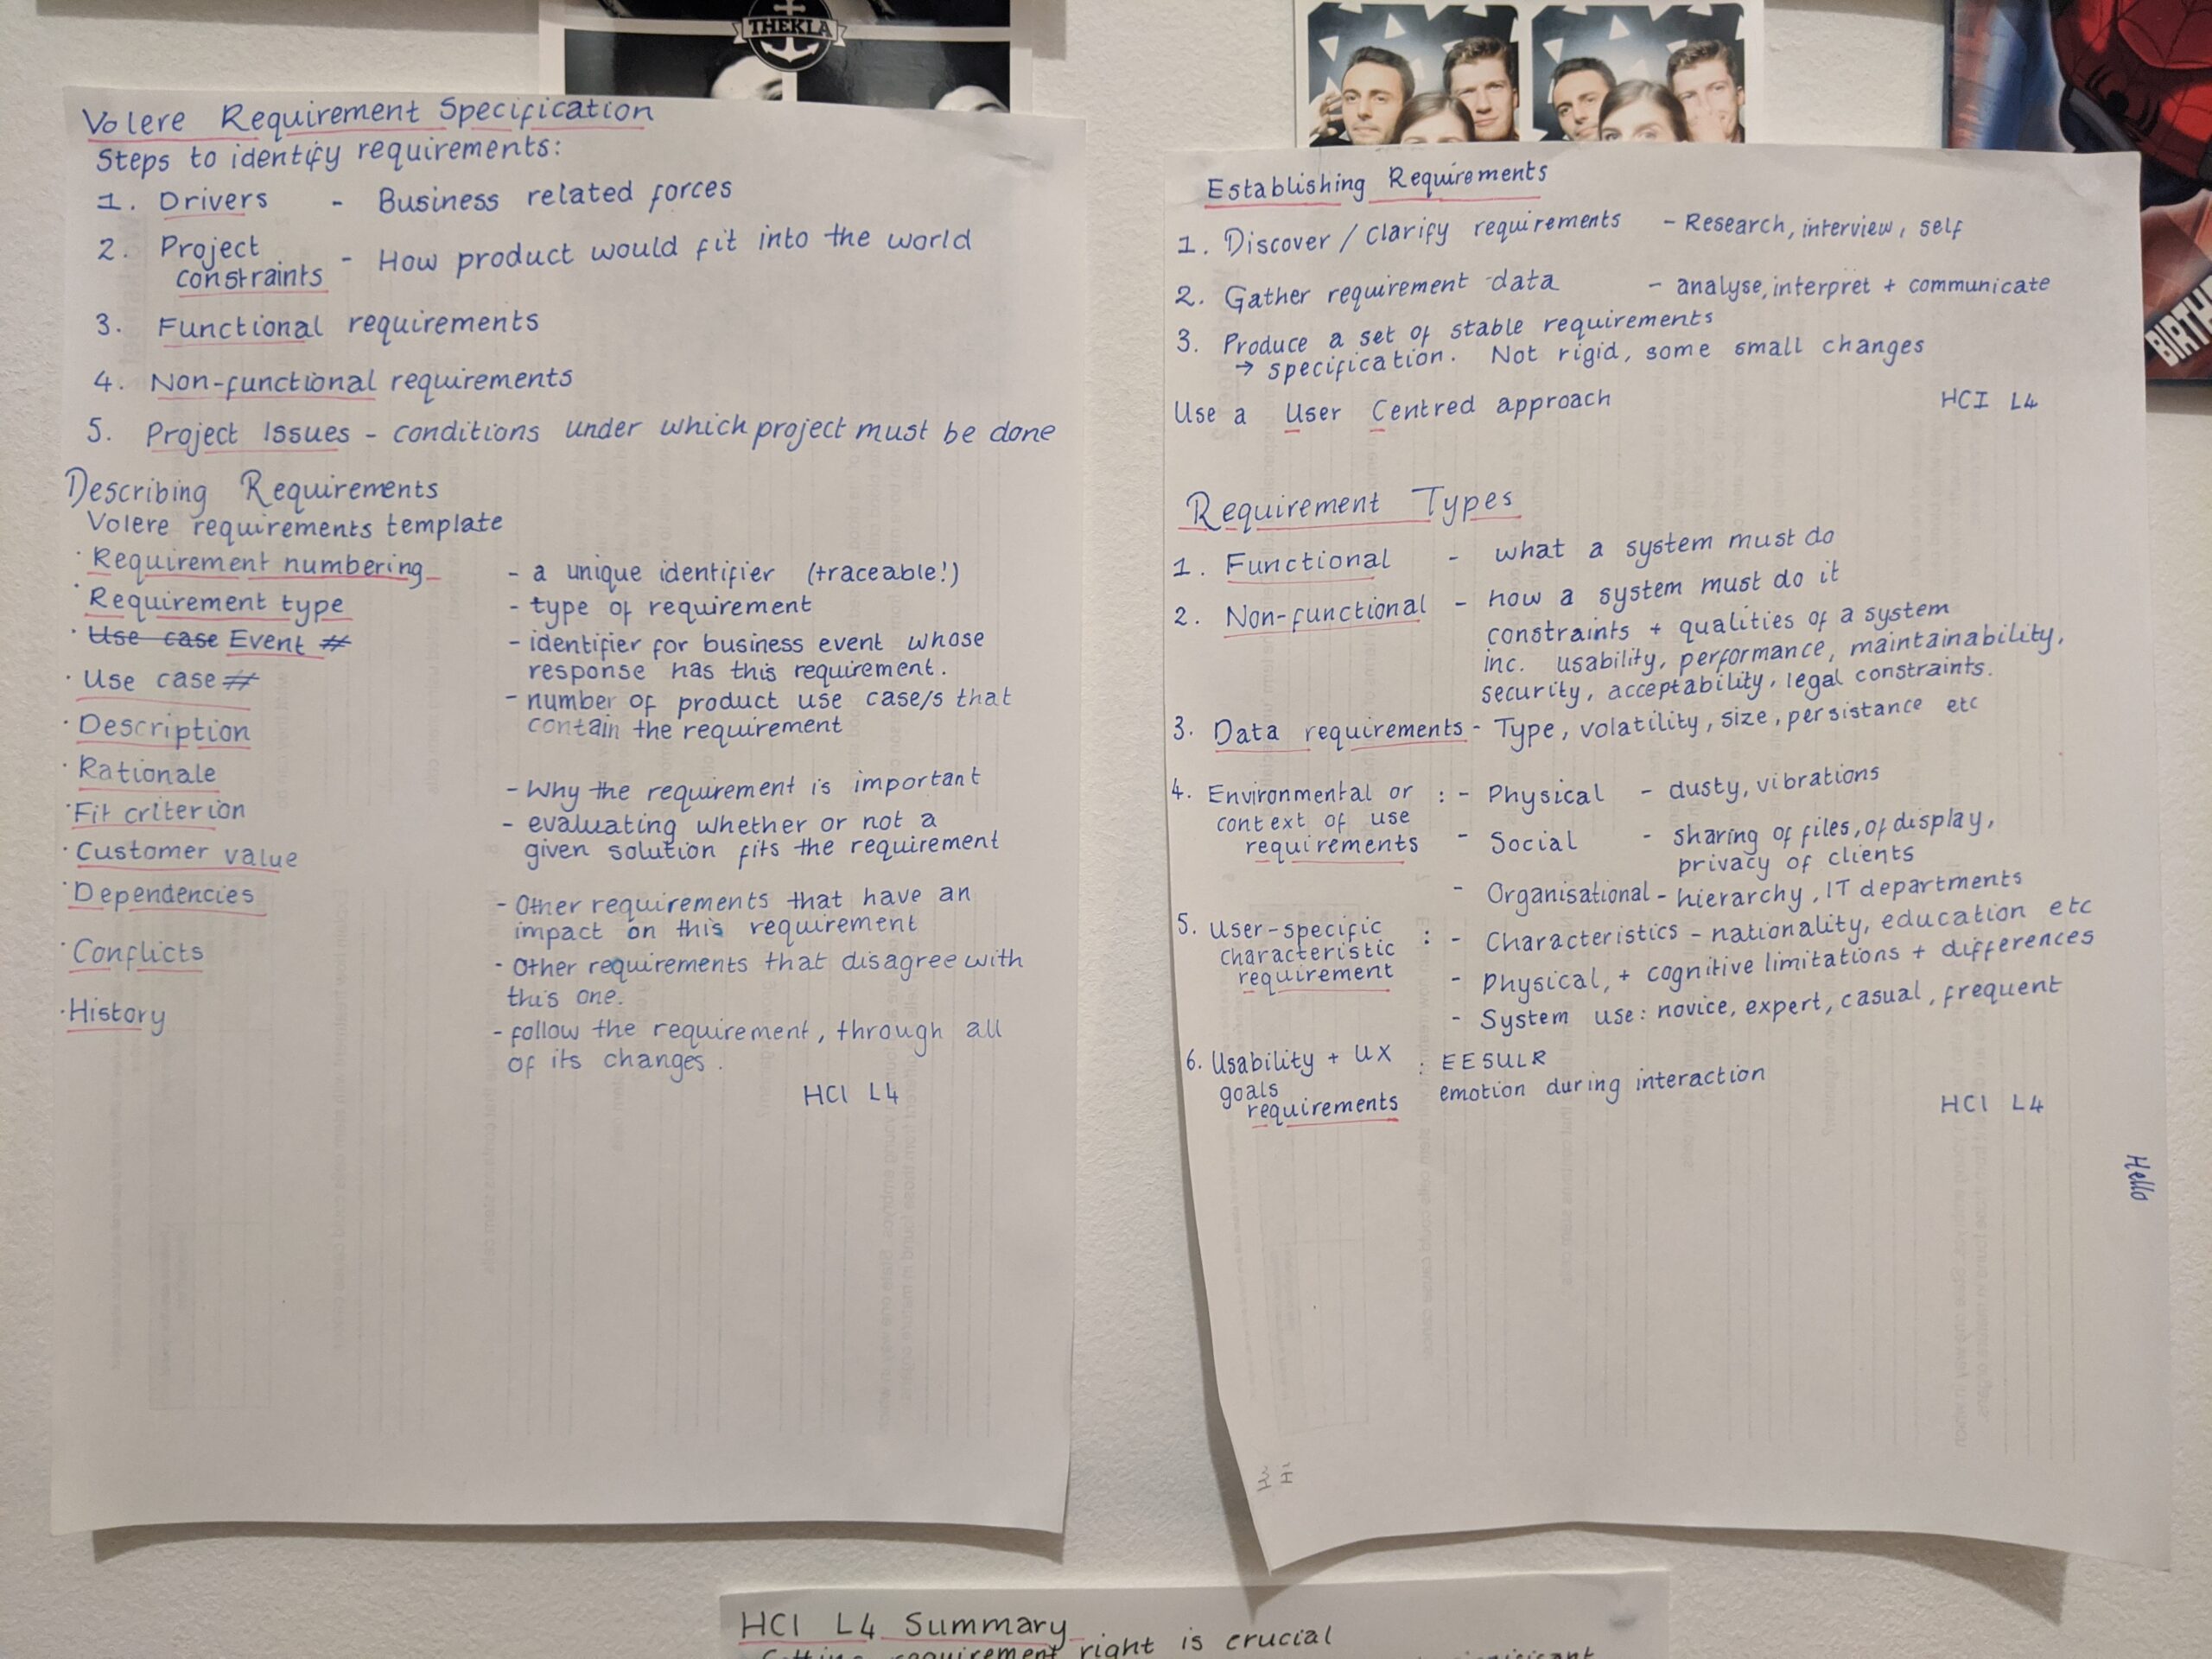 THEKLA
Volere Requirement Specification
Steps to identify requirements:
1. Drivers - Business related forces
2. Project constraints - How product would fit into the world
3. Functional requirements
4. Non-functional requirements
5. Project Issues - conditions under which project must be done
Describing Requirements
Volere requirements template
· Requirement numbering - a unique identifier (traceable!)
· Requirement type - type of requirement
· Use case Event # - identifier for business event whose
response has this requirement.
· Use case # - number of product use case/s that
contain the requirement
· Description
· Rationale - Why the requirement is important
· Fit criterion - evaluating whether or not a
given solution fits the requirement
· Customer value
· Dependencies - Other requirements that have an
impact on this requirement
· Conflicts - Other requirements that disagree with
this one.
· History - follow the requirement, through all
of its changes.
HCI L4
Establishing Requirements
1. Discover / Clarify requirements - Research, interview, self
2. Gather requirement data - analyse, interpret + communicate
3. Produce a set of stable requirements
→ specification. Not rigid, some small changes
Use a User Centred approach
HCI L4
Requirement Types
1. Functional - what a system must do
2. Non-functional - how a system must do it
constraints + qualities of a system
inc. usability, performance, maintainability,
security, acceptability, legal constraints.
3. Data requirements - Type, volatility, size, persistance etc
4. Environmental or context of use requirements : - Physical - dusty, vibrations
- Social - sharing of files, of display,
privacy of clients
- Organisational - hierarchy, IT departments
5. User-specific characteristic requirement : - Characteristics - nationality, education etc
- Physical, + cognitive limitations + differences
- System use: novice, expert, casual, frequent
6. Usability + UX goals requirements : EESULR
emotion during interaction
HCI L4
Hello
HCI L4 Summary
requirement right is crucial